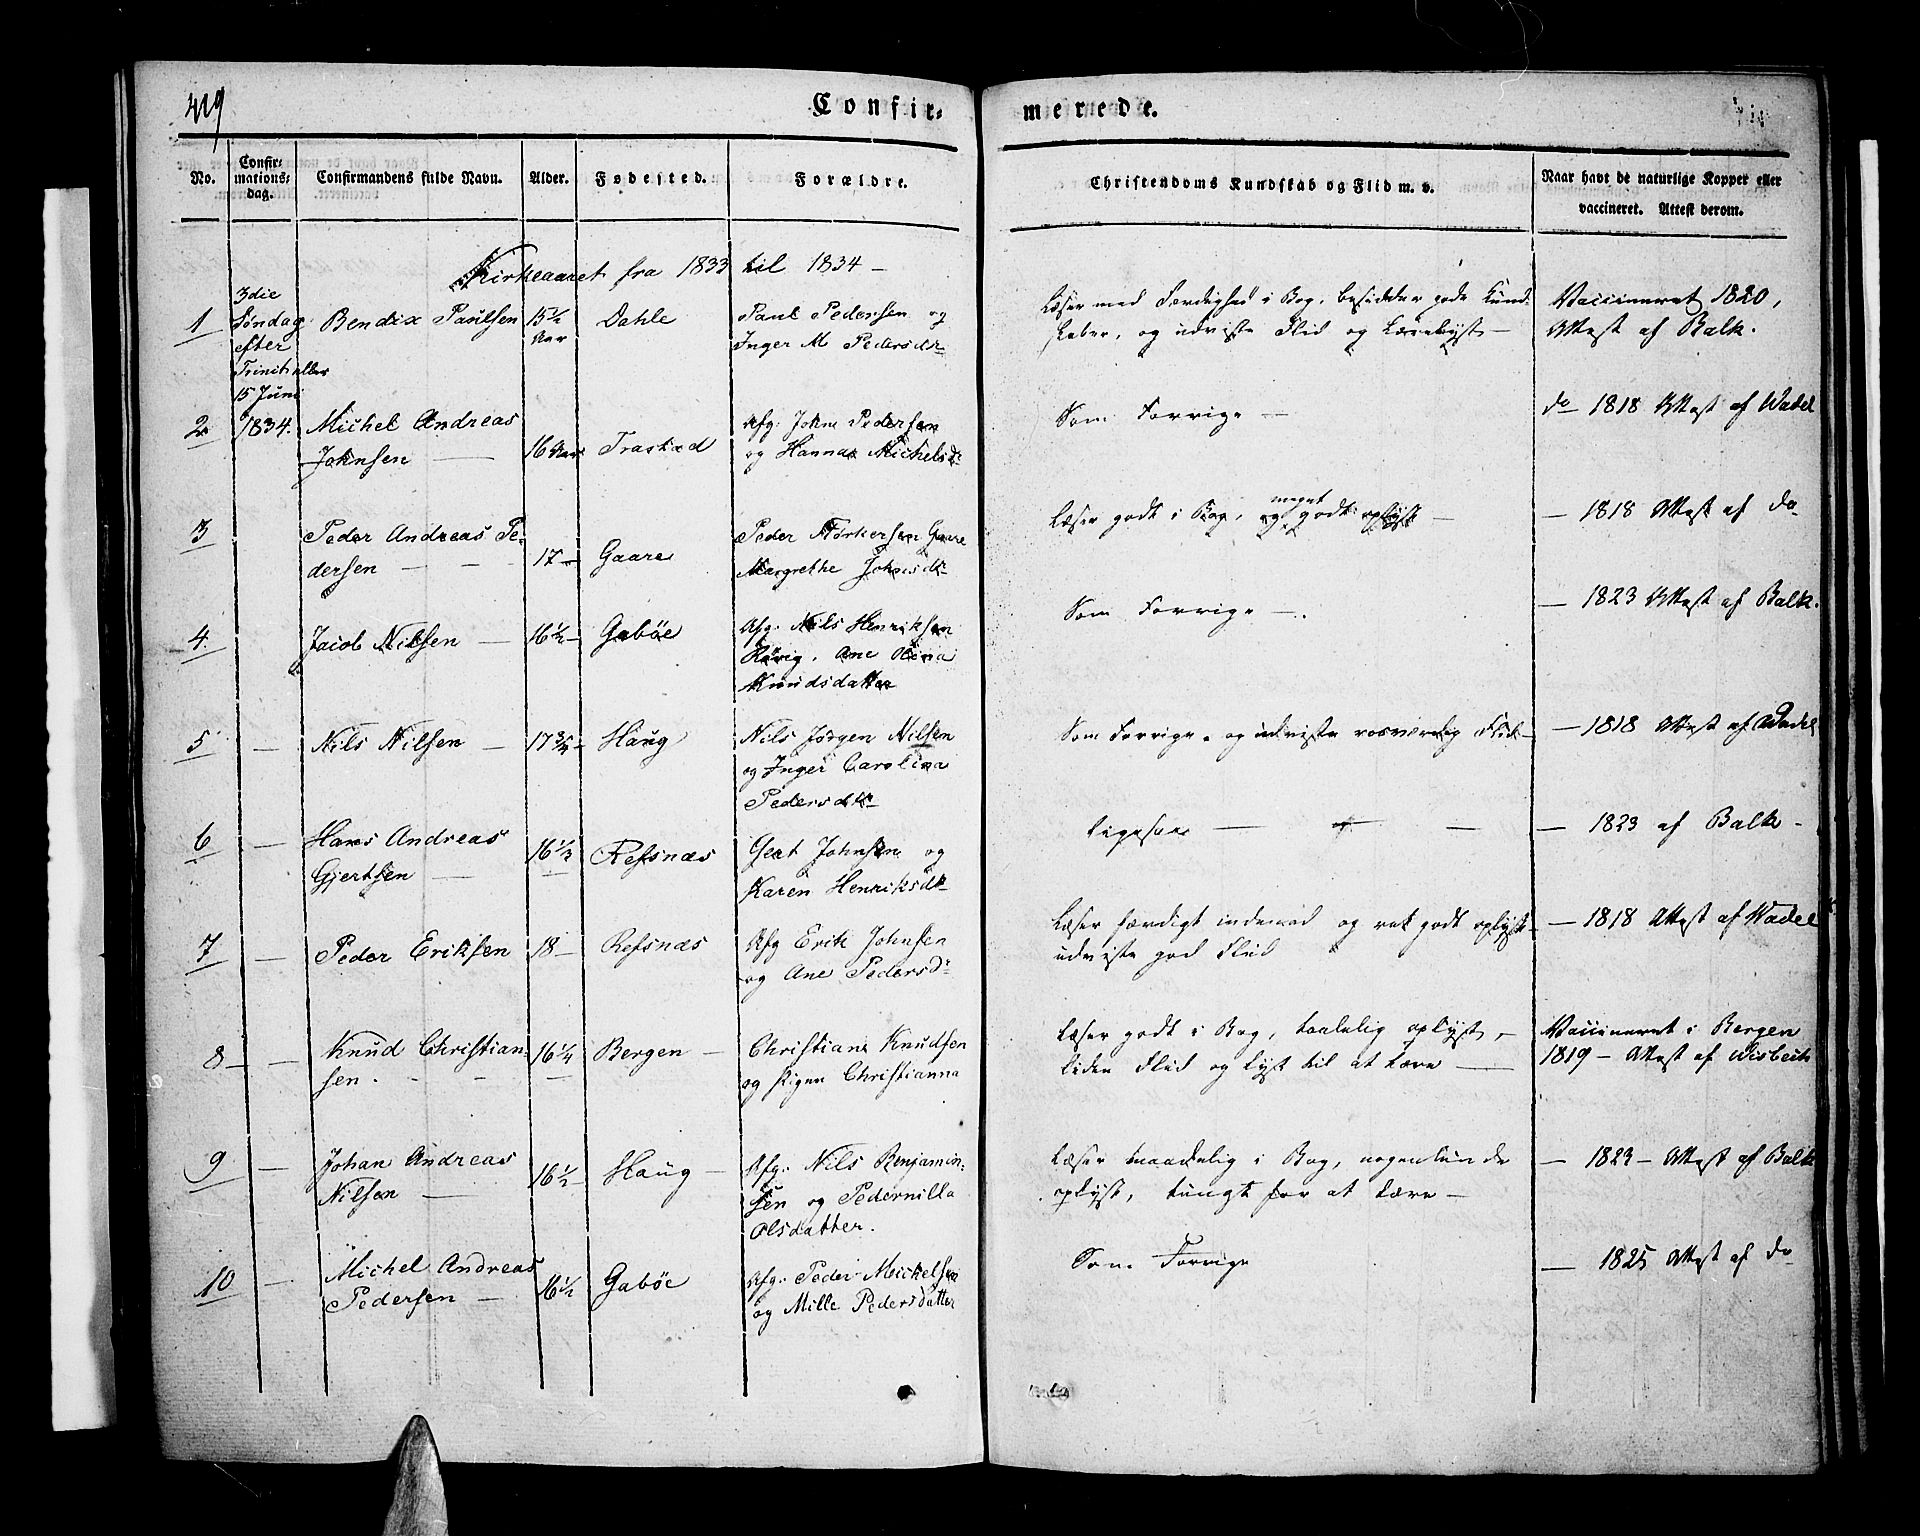 419
Confir-
merede.
No.
Confir-
mations-
dag.
Confirmandens fulde Navn.
Alder.
Fødested.
Forældre.
Christendoms Kundskab og Flid m. v.
Naar havt de naturlige Kopper eller
vaccineret. Attest derom.
Kirkeaaret fra 1833 til 1834 —
3die
Søndag
efter
Trinit eller
15 Juni
1834.
1
Bendix Paulsen
15 1/2
Aar
Dahle
Paul Pedersen og
Inger M Pedersdr
Læser med Færdighed i Bog, besidder gode Kund-
skaber, og udviste Flid og Lærelyst —
Vaccineret 1820,
Attest af Balk.
2
Michel Andreas
Johnsen —
16 Aar
Trastad
Afg: John Pedersen
og Hanna Michelsdr
Som Forrige —
do 1818 Attest af Wadel
3
Peder Andreas Pe-
dersen — — —
17 —
Gaare
Peder Gaare
Margrethe Johnsdr
Læser godt i Bog, meget godt oplyst —
— 1818 Attest af do
4.
Jacob Nilsen —
16 1/2 —
Gabøe
Afg: Nils Henriksen
Rørvig. Ane Olina
Knudsdatter
Som Forrige —.
— 1823 Attest af Balk.
5
—
Nils Nilsen —
17 3/4 —
Haug
Nils Jørgen Nilsen
og Inger Carolina
Pedersdtr
Som Forrige, og udviste rosværdig Flid —
— 1818 Attest af Wadel
6
—
Hans Andreas
Gjertsen —
16 1/2
—
Refsnæs
Gert Johnsen og
Karen Henriksdtr
Ligesaa — —
— 1823 af Balk —
7
—
Peder Eriksen
18 —
Refsnæs
Afg Erik Johnsen
og Ane Pedersdr
Læser færdigt indenad og ret godt oplyst —
udviste god Flid
— 1818 Attest af Wadel
8 —
—
Knud Christian-
sen. — —
16 1/4
—
Bergen —
Christian Knudsen
og Pigen Christianna
Læser godt i Bog, taalelig oplyst, —
liden Flid og Lyst til at lære —
Vaccineret i Bergen
1819 — Attest af
9
—
Johan Andreas
Nilsen —
16 1/2
Haug —
Afg: Nils Benjamin-
sen og Pedernilla
Olsdatter.
Læser maadelig i Bog, nogenlunde
oplyst, tungt for at lære —
— 1823 — Attest af Balk
10
—
Michel Andreas
Pedersen —
16 1/2
Gabøe
Afg: Peder Meickelsen
og Mille Pedersdatter
Som Forrige
— 1825 Attest af do